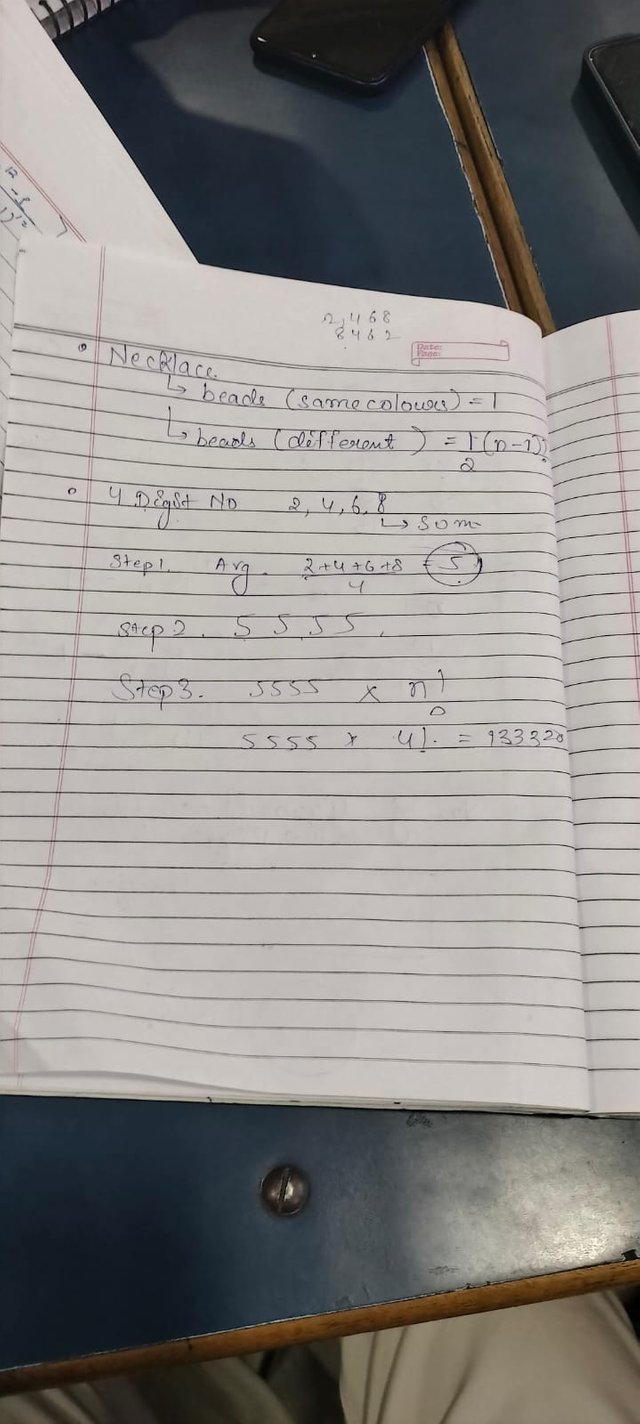 2,468
8462
Date:
Page:
• Necklace
↳ beads (same colours) = 1
↳ beads (different) = 1/2 (n-1)!
• 4 Digit NO 2, 4, 6, 8
↳ sum
Step1. Avg. 2+4+6+8/4 = 5
Step 2. 5 5 5 5.
Step3. 5555 × n!
5555 × 4!. = 133320